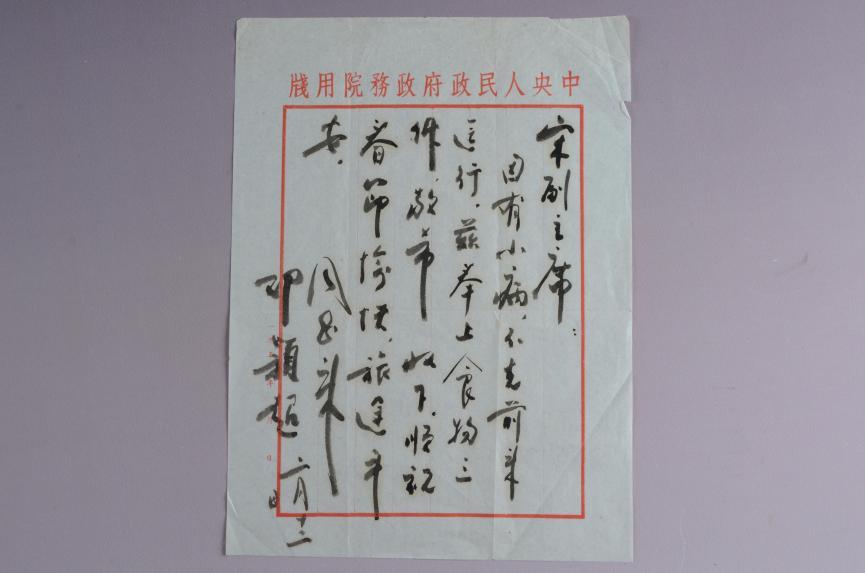 中央人民政府政務院用牋
宋副主席：
因有小病，不克前来
送行。兹奉上食物三
件，敬希 收下。順祝
春節愉快，旅途平
安。
周恩来
鄧颖超
二月十二